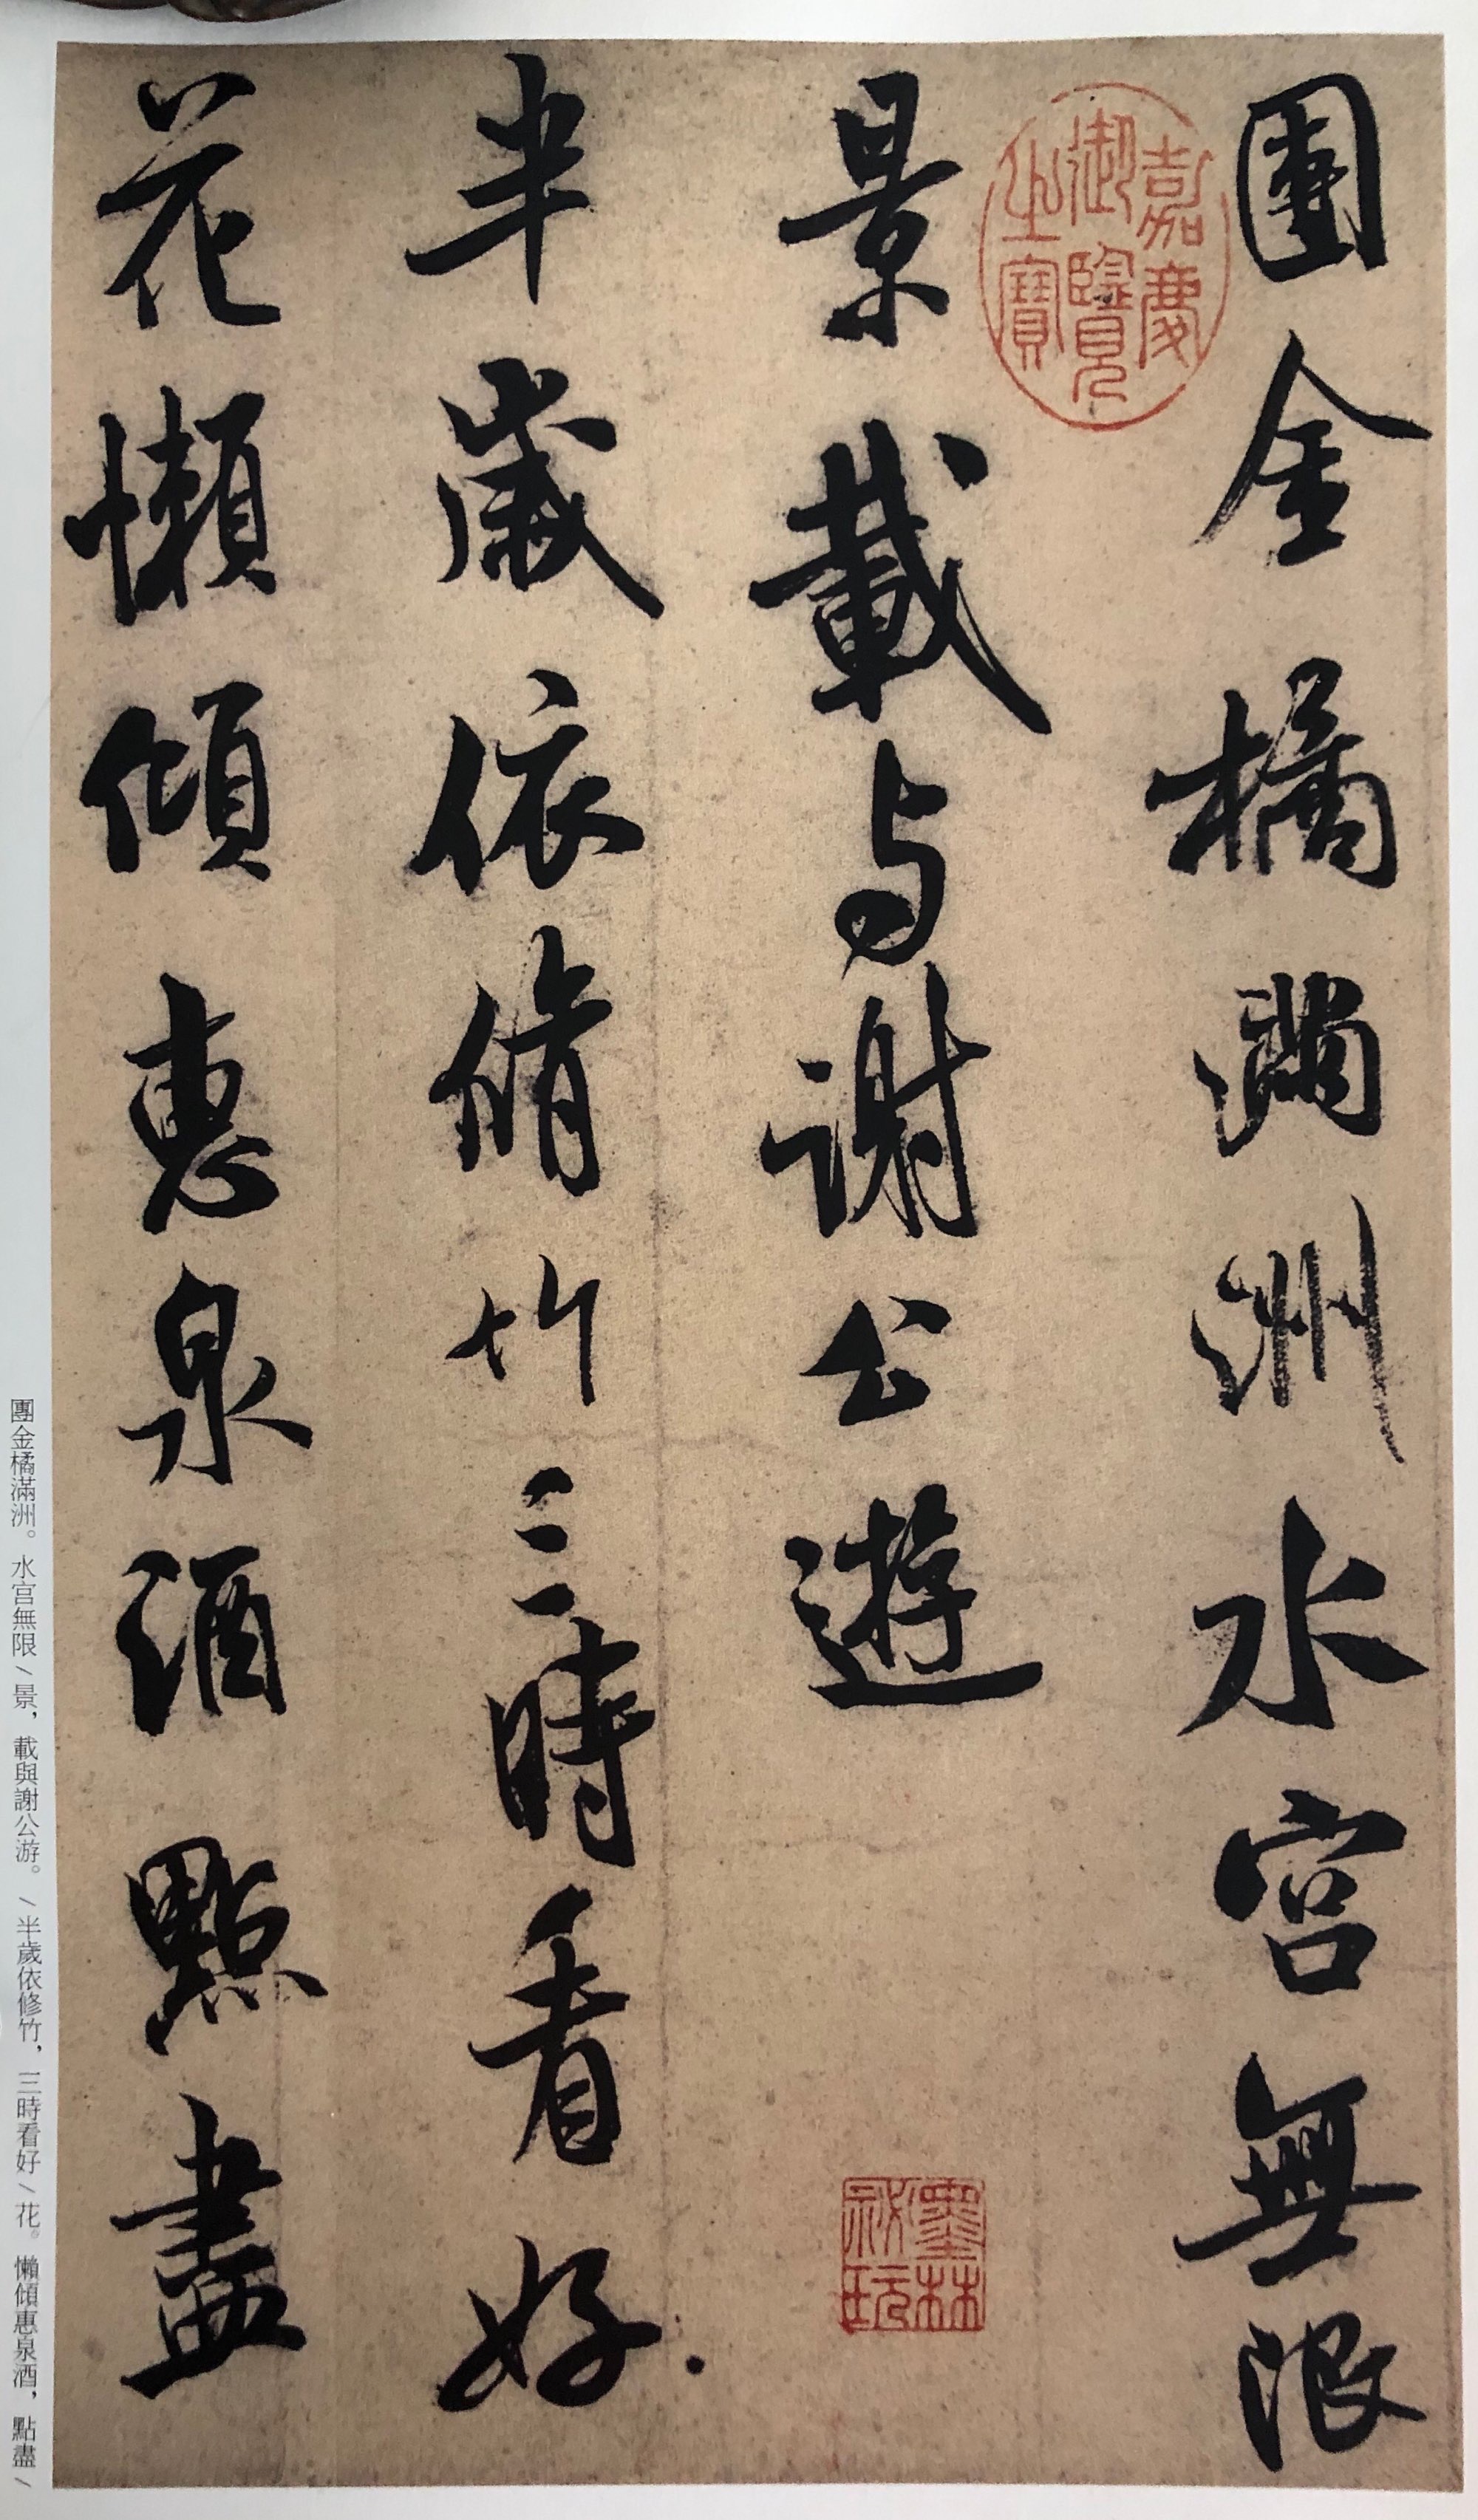 團金橘滿洲水宮無限
景載与謝公遊
半歲依脩竹三時看好
花懶傾惠泉酒點盡
嘉慶
御覽
之寶
墨林
祕玩
團金橘滿洲。水宮無限/景，載與謝公游。/半歲依修竹，三時看好/花。懶傾惠泉酒，點盡/